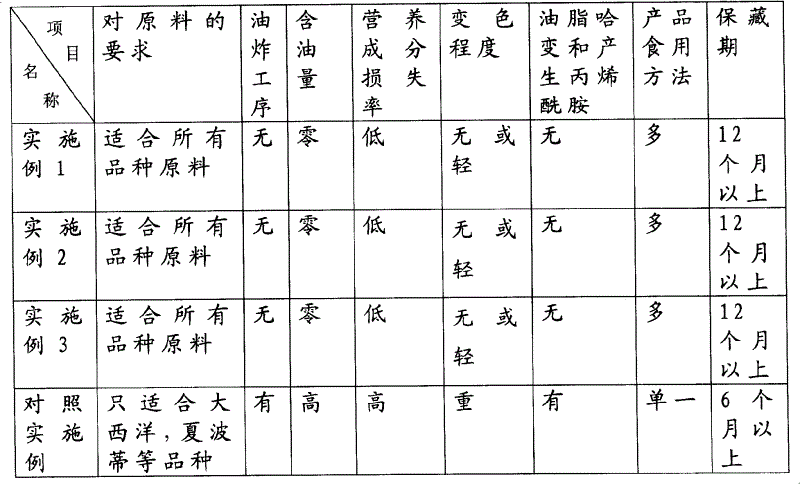 项目
名称
对原料的要求
油炸工序
含油量
营养成分损失率
变色程度
油脂哈变和产生丙烯酰胺
产品食用方法
保藏期
实施例1
适合所有品种原料
无
零
低
无或轻
无
多
12个月以上
实施例2
适合所有品种原料
无
零
低
无或轻
无
多
12个月以上
实施例3
适合所有品种原料
无
零
低
无或轻
无
多
12个月以上
对照实施例
只适合大西洋,夏波蒂等品种
有
高
高
重
有
单一
6个月以上